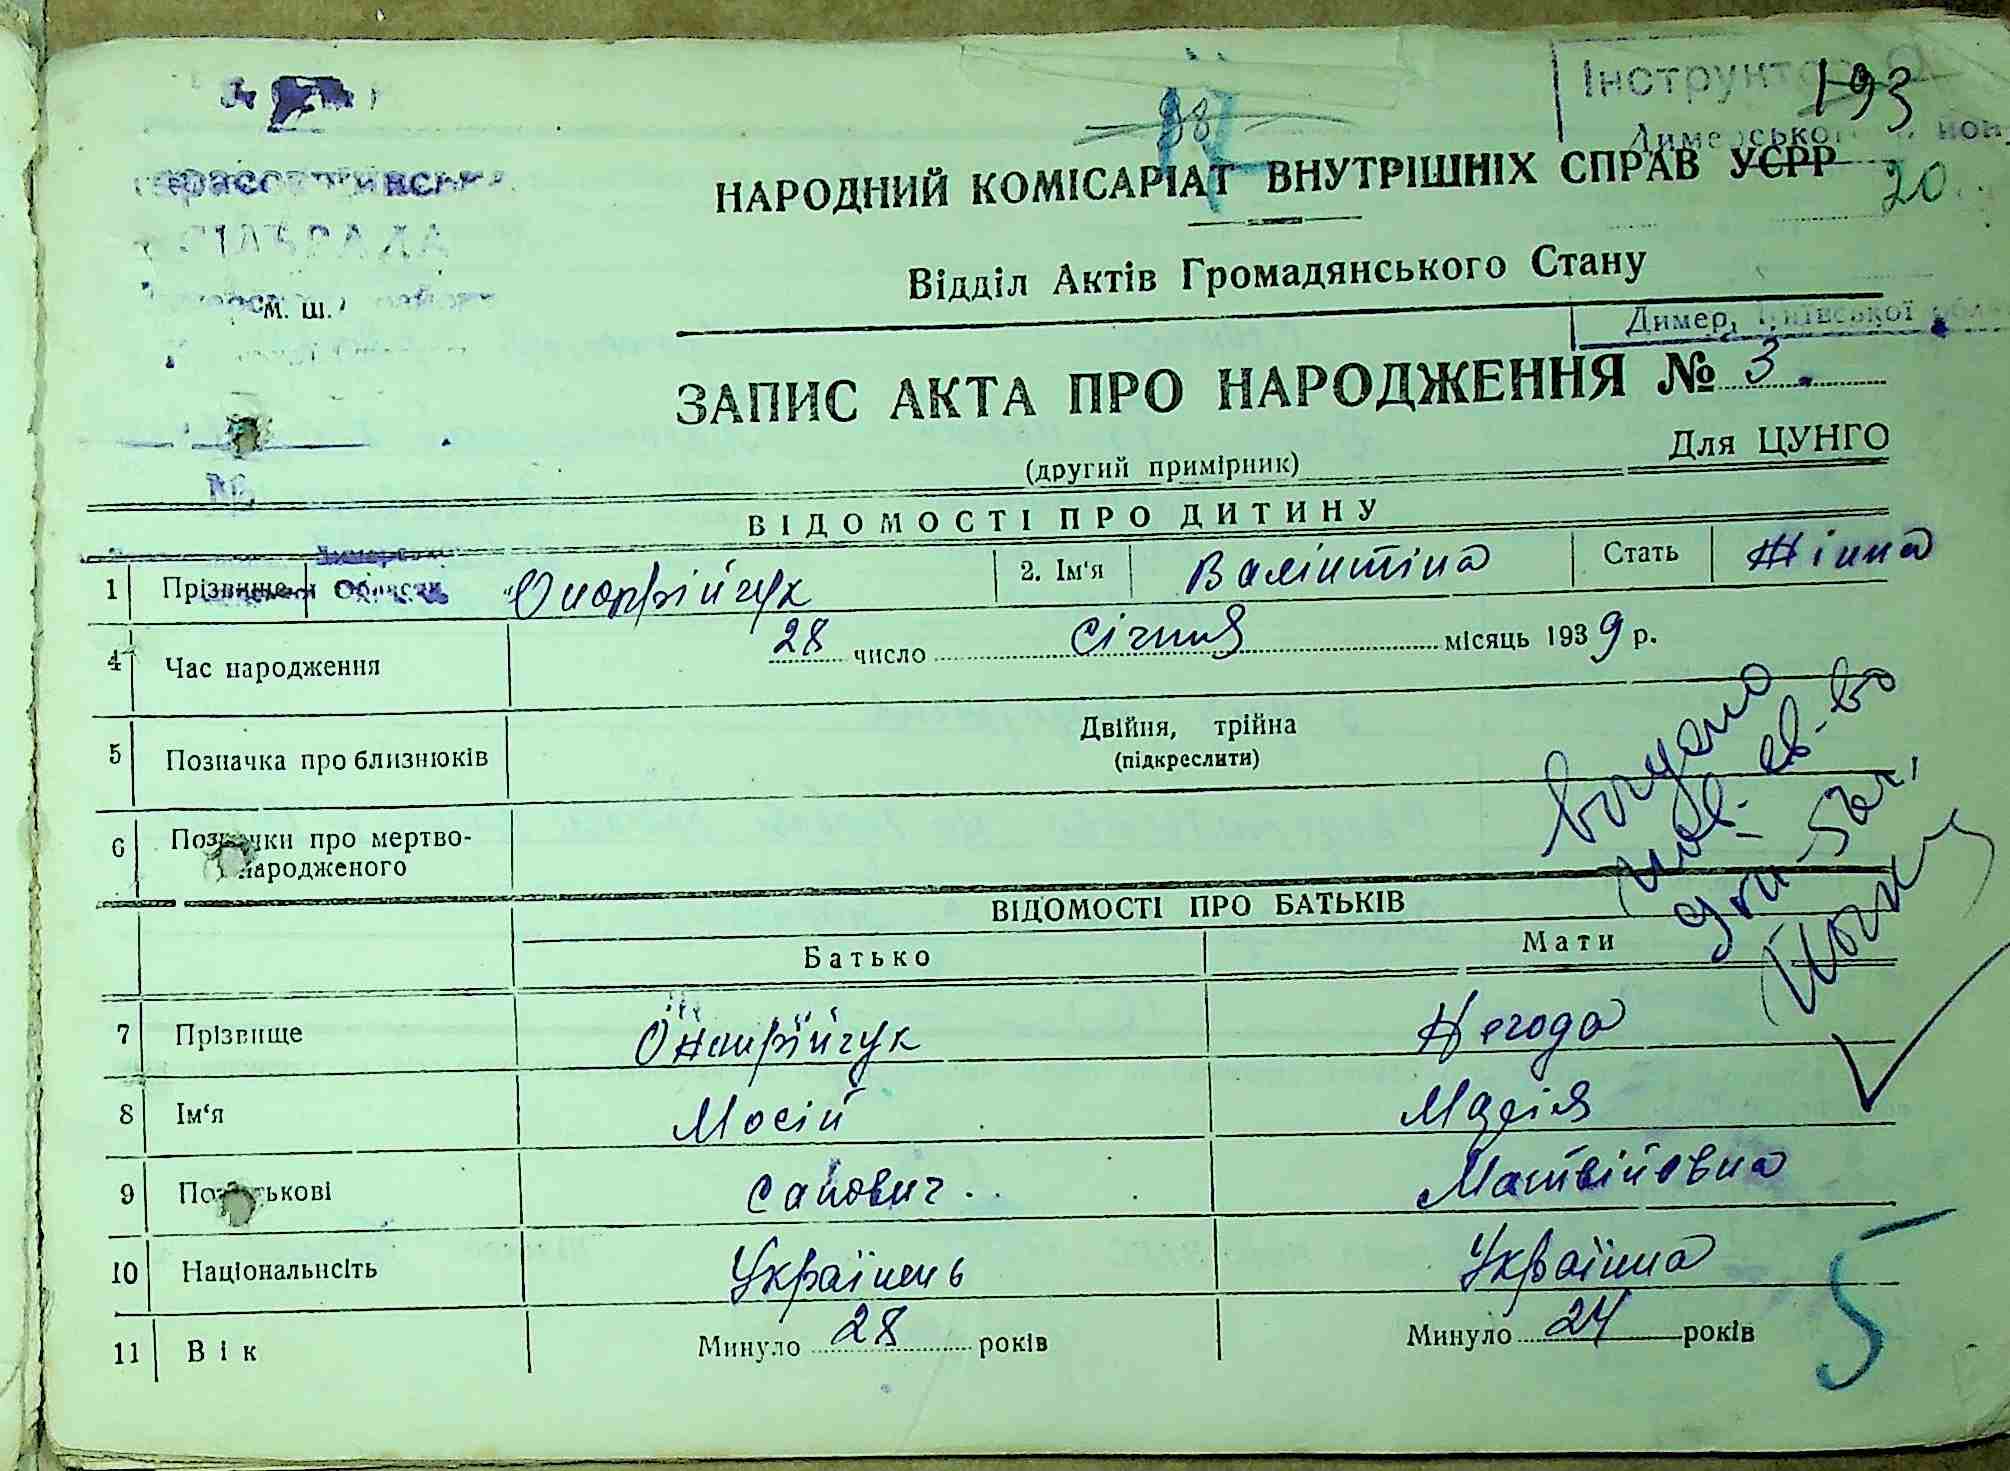 193
98
Інструктор
НАРОДНИЙ КОМІСАРІАТ ВНУТРІШНІХ СПРАВ УСРР
20
СІЛЬРАДА
Відділ Актів Громадянського Стану
м. ш.
Димер, Київської
ЗАПИС АКТА ПРО НАРОДЖЕННЯ № 3
Для ЦУНГО
(другий примірник)
№
ВІДОМОСТІ ПРО ДИТИНУ
1 Прізвище Онофрійчук 2. Ім'я Валінтіна Стать Жінна
4 Час народження 28 число Січня місяць 1939 р.
5 Позначка про близнюків Двійня, трійна
(підкреслити)
6 Позначки про мертво-
народженого
ВІДОМОСТІ ПРО БАТЬКІВ
Батько Мати
7 Прізвище Онофрійчук Негода
8 Ім'я Мосій Марія
9 По батькові Савович Матвійовна
10 Національнсіть Українець Українка
11 Вік Минуло 28 років Минуло 24 років
5